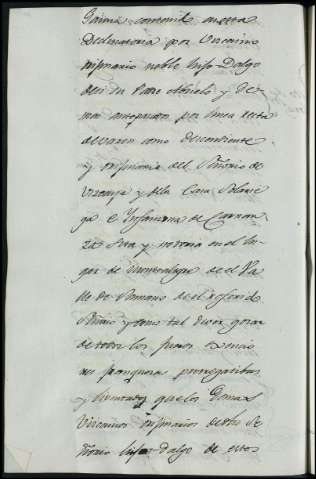 Jaime contenido en esta
Declaratoria por Vizcaino
originario noble hijo Dalgo
de su Padre Abuelo y de
mas antepasados por linea recta
de varon como descendiente
y originario del Señorio de
Vizcaya y de la Casa Solarie
ga e Infanzona de
sita y notoria en el lu
gar de de el Va
lle de Somorro de el referido
Señorio y como tal deve gozar
de todos los fueros exencio
nes franquezas prerrogatibas
y livertades que los demas
Vizcainos originarios de dho Se
ñorio hijos dalgo de estos